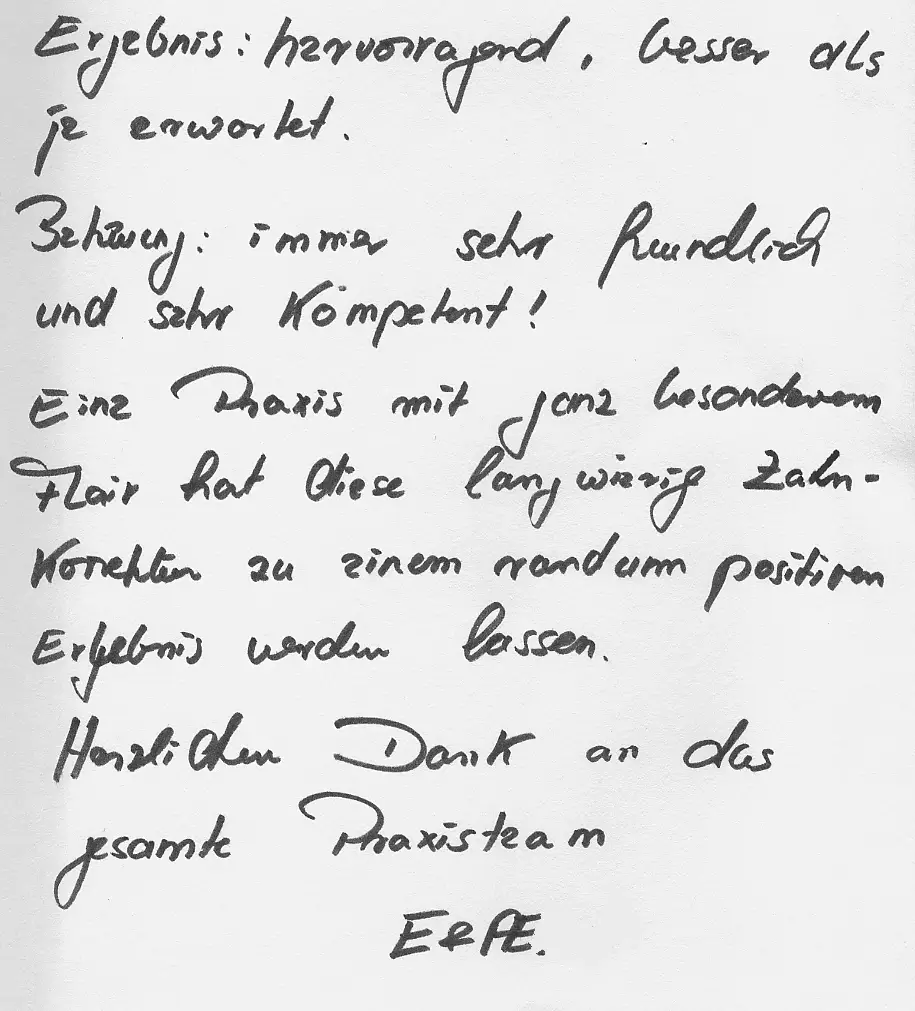 Ergebnis: hervorragend, besser als
je erwartet.
Betreuung: immer sehr freundlich
und sehr kompetent!
Eine Praxis mit ganz besonderem
Flair hat diese langwierige Zahn-
korrektur zu einem rundum positiven
Ergebnis werden lassen.
Herzlichen Dank an das
gesamte Praxisteam
E & PE.